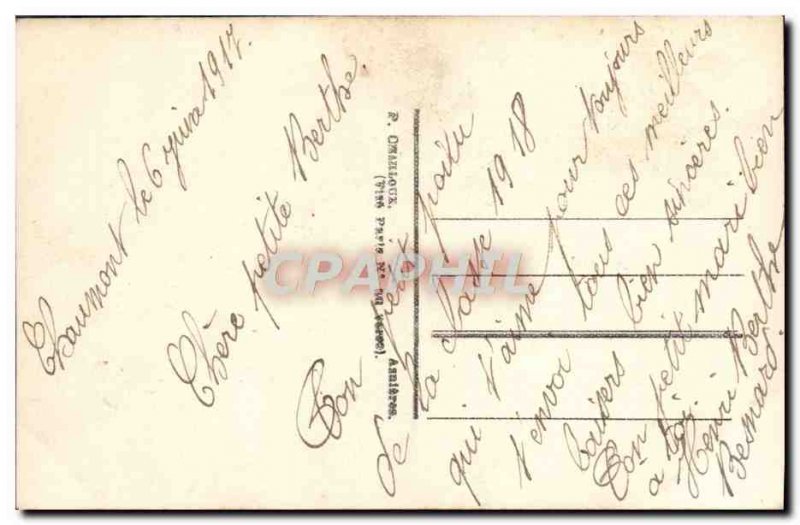 Chaumont le 6 juin 1917.
Chère petite Berthe.
Ton petit poilu
de la classe 1918
qui t'aime pour toujours
t'envoi tous ces meilleurs
baisers bien sincères.
Ton petit mari bien
a toi Henri Berthe
Besnard.
P. CHAILLOUX. Asnières.
(Visé Paris N°
CPAPHIL